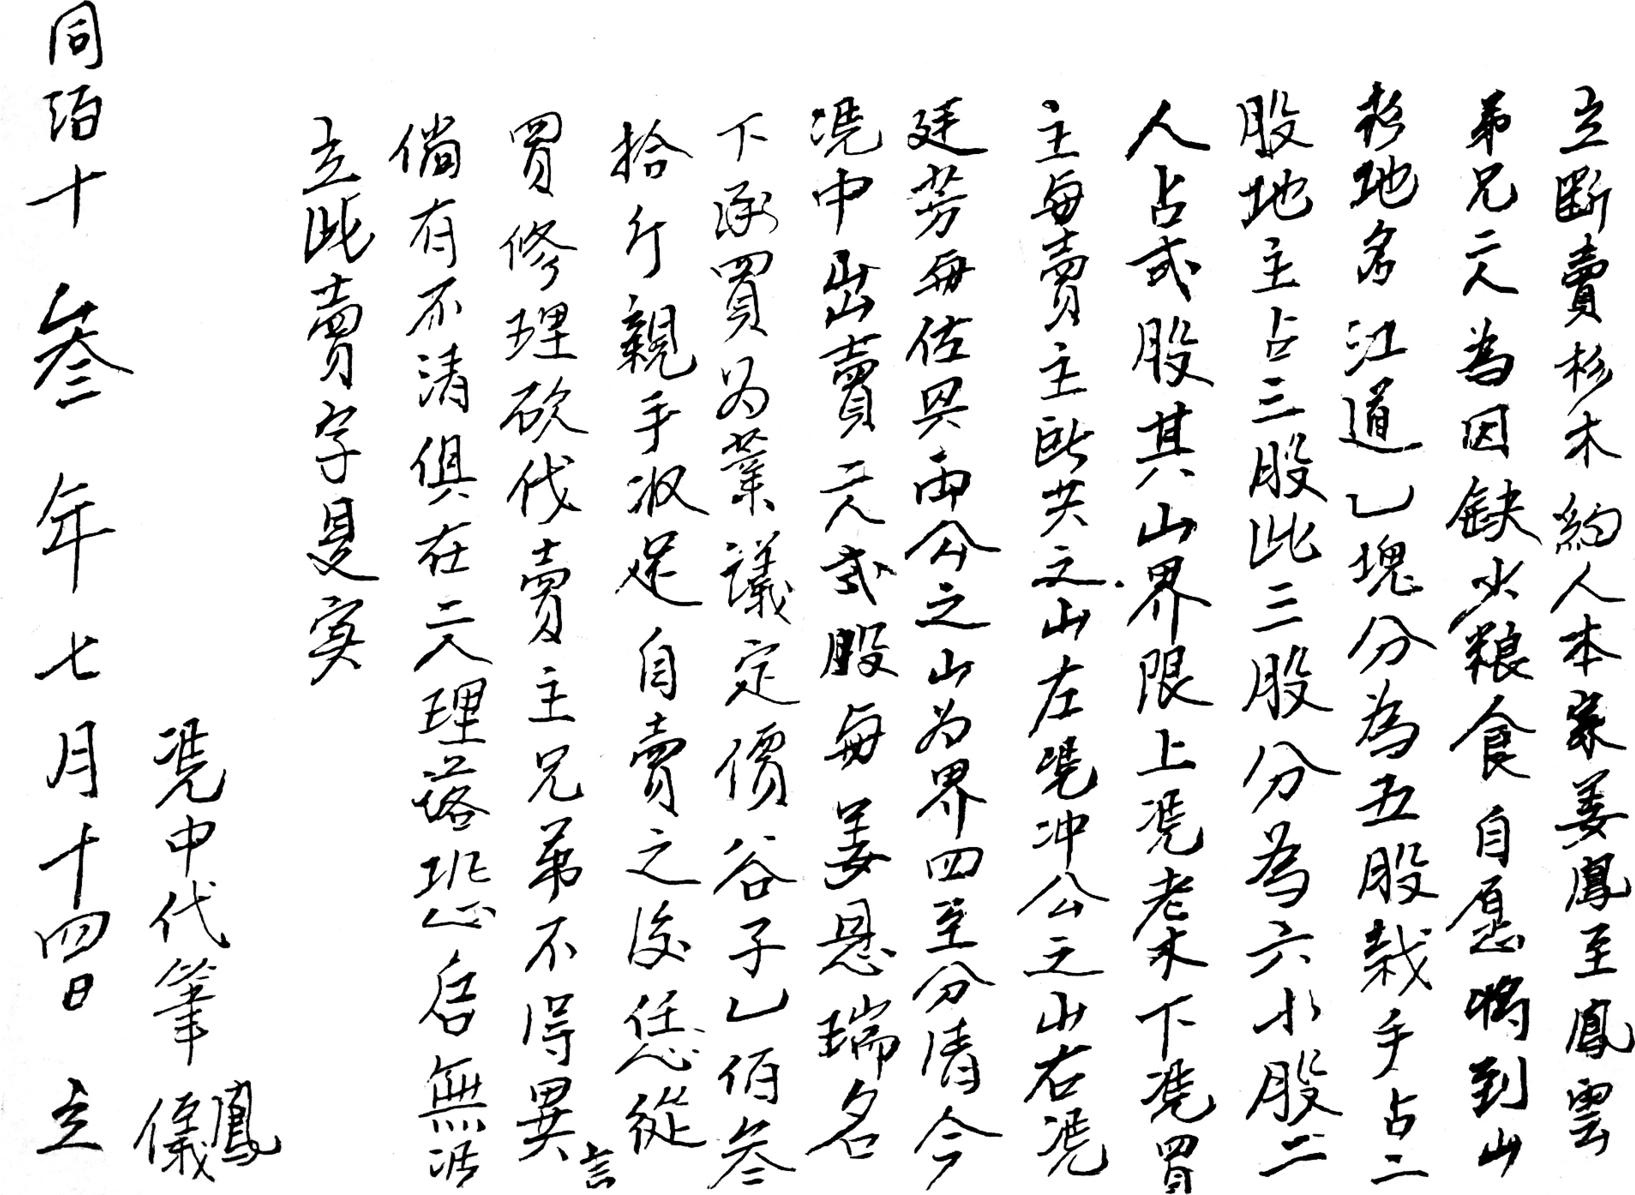 立斷賣杉木約人本家姜鳳至鳳雲
弟兄二人為因缺少粮食自愿將到山
杉地名江道乙塊分為五股栽手占二
股地主占三股此三股分為六小股二
人占弍股其山界限上凴老木下凴買
主每賣主所共之山左凴冲公之山右凴
廷芳每佐興両公之山為界四至分清今
凴中出賣二人弍股每姜恩瑞名
下承買為業議定價谷子乙佰叁
拾斤親手收足自賣之後任從
買修理砍伐賣主兄弟不得異言
倘有不清俱在二人理落恐后無凴
立此賣字是實
凴中代筆 鳳儀
同治十叁年七月十四日 立